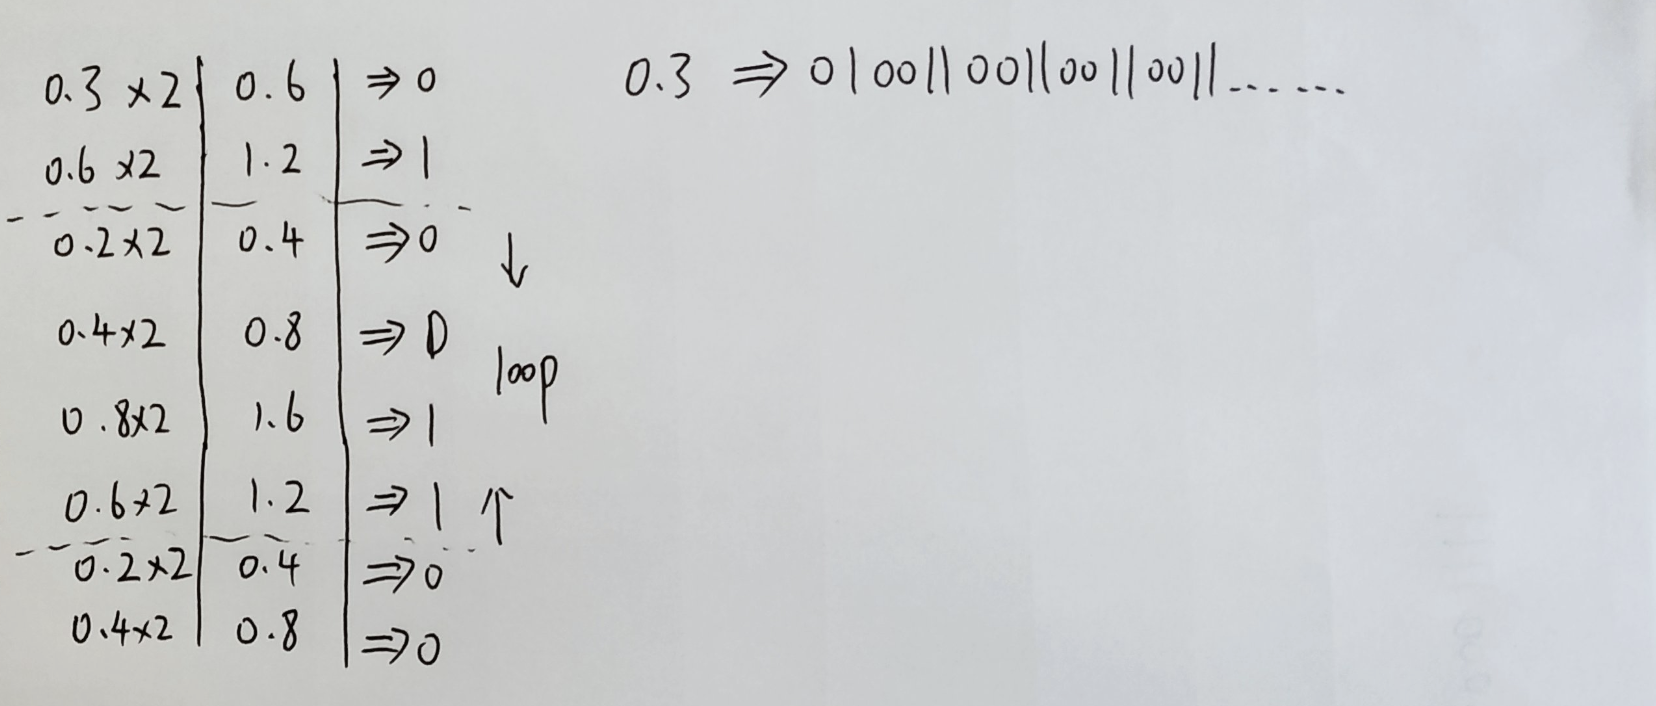 0.3 ×2 | 0.6 | ⇒ 0
0.6 ×2 | 1.2 | ⇒ 1
0.2×2 | 0.4 | ⇒ 0
↓
0.4×2 | 0.8 | ⇒ 0
loop
0.8×2 | 1.6 | ⇒ 1
0.6×2 | 1.2 | ⇒ 1 ↑
0.2×2 | 0.4 | ⇒ 0
0.4×2 | 0.8 | ⇒ 0
0.3 ⇒ 010011001100110011......